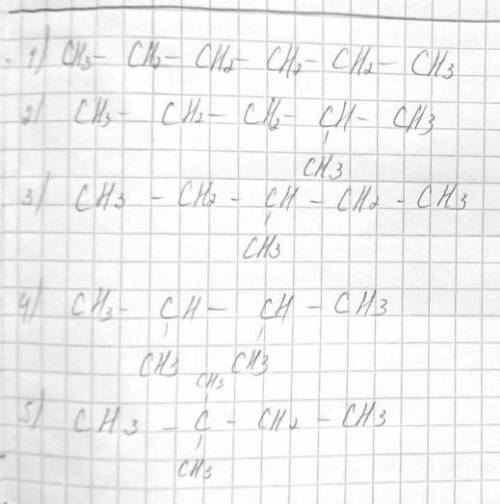 1) CH3 - CH2 - CH2 - CH2 - CH2 - CH3
2) CH3 - CH2 - CH2 - CH - CH3
CH3
3) CH3 - CH2 - CH - CH2 - CH3
CH3
4) CH3 - CH - CH - CH3
CH3 CH3
CH3
5) CH3 - C - CH2 - CH3
CH3